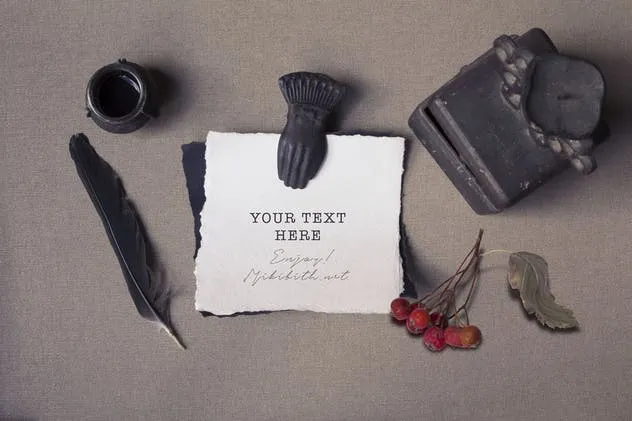 YOUR TEXT
HERE
Enjoy!
Mibibith.net